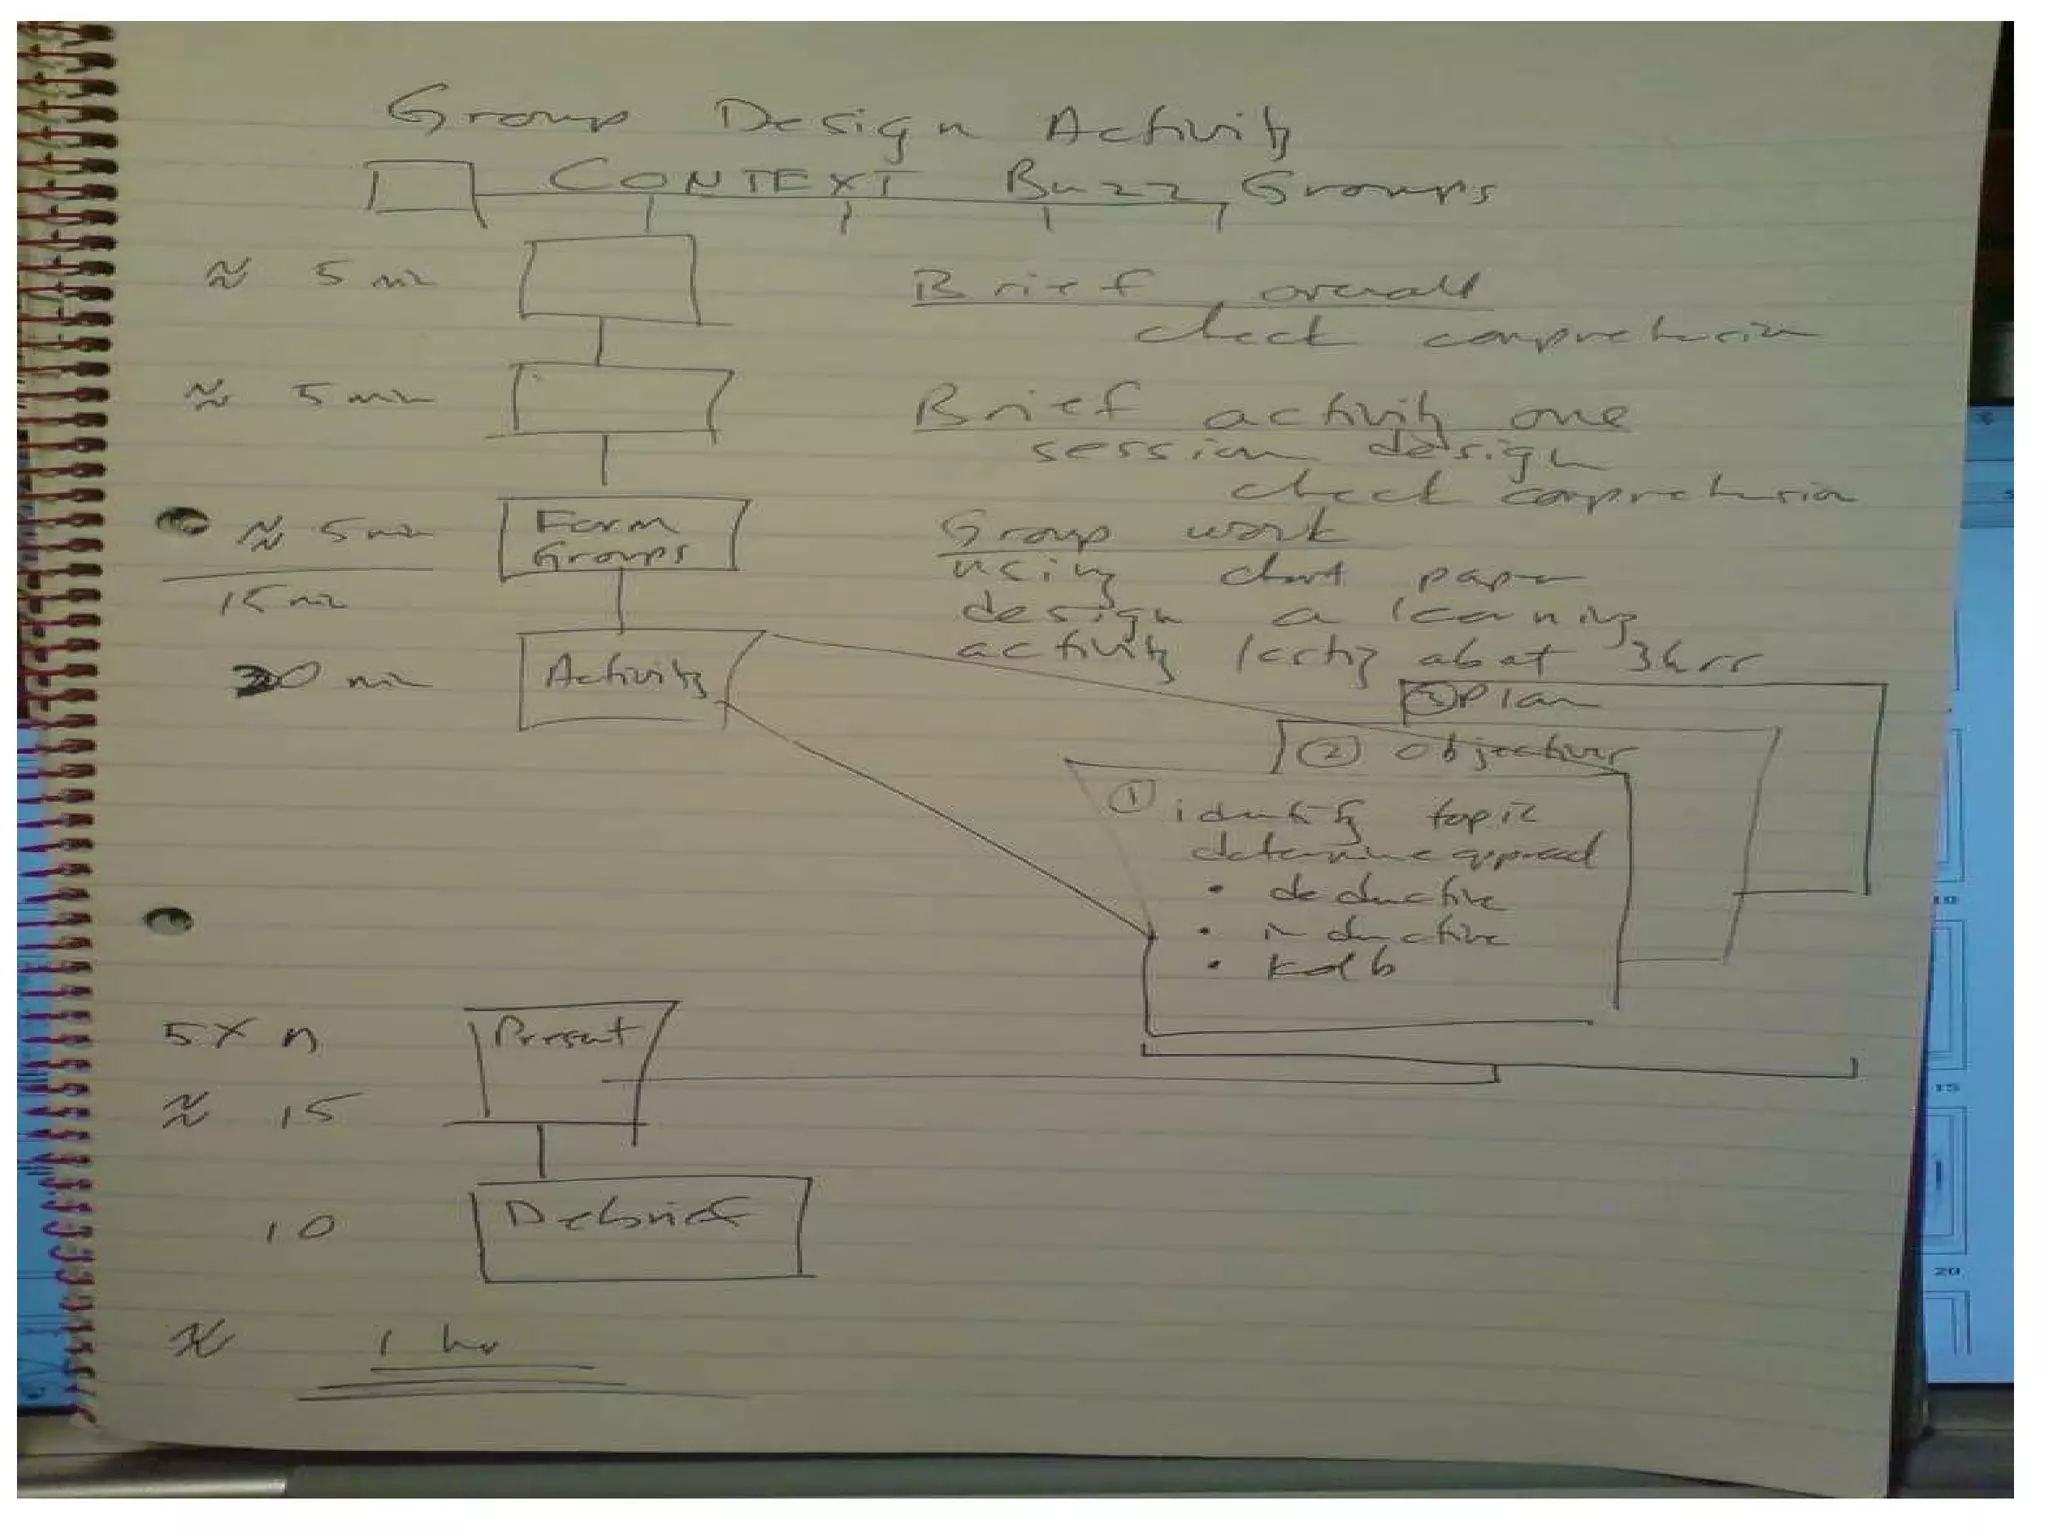 Group Design Activity
CONTEXT Buzz Groups
≈ 5 min
Brief overall
check comprehension
≈ 5 min
Brief activity one
session design
check comprehension
≈ 5 min
Form
Groups
Group work
using chart paper
15 min
design a learning
activity lasting about 3hrs
20 min
Activity
③ Plan
② Objectives
① identify topic
determine approach
• deductive
• inductive
• Kolb
5 x n
Present
≈ 15
10
Debrief
≈ 1 hr
10
15
20